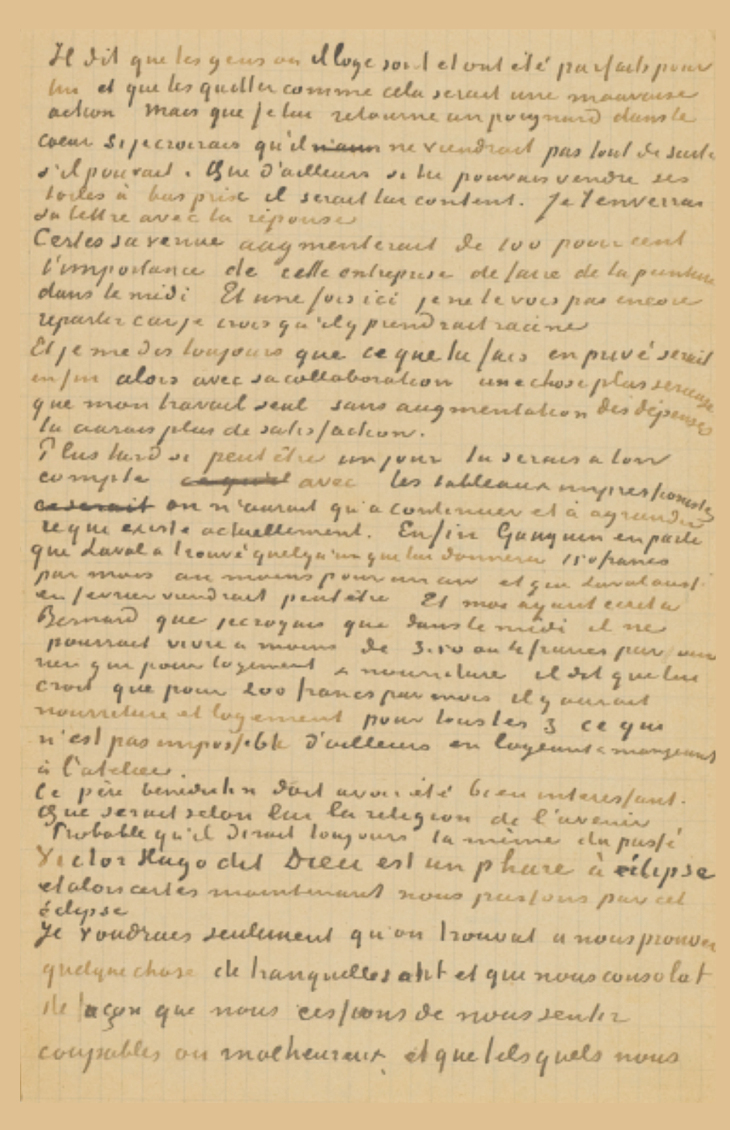 Il dit que les gens ou il loge sont et ont été parfaits pour
lui et que les quitter comme cela serait une mauvaise
action Mais que je lui retourne un poignard dans le
coeur si je croirais qu'il ne viendrait pas tout de suite
s'il pouvait. Que d'ailleurs si tu pouvais vendre ses
toiles à bas prix il serait lui content. Je t'enverrai
sa lettre avec la réponse
Certes sa venue augmenterait de 100 pour cent
l'importance de cette entreprise de faire de la peinture
dans le midi Et une fois ici je ne le vois pas encore
repartir car je crois qu'il y prendrait racine
Et je me dis toujours que ce que tu fais en privé serait
enfin alors avec sa collaboration une chose plus serieuse
que mon travail seul sans augmentation des dépenses
tu aurais plus de satisfaction.
Plus tard si peut être un jour tu serais a ton
compte avec les tableaux impressioniste
on n'aurait qu'a continuer et à agrandir
ce que existe actuellement. Enfin Gauguin en parle
que Laval a trouvé quelqu'un que lui donnera 150 francs
par mois au moins pour un an et que Laval aussi
en fevrier viendrait peut être Et moi ayant ecrit a
Bernard que je croyais que dans le midi il ne
pourrait vivre a moins de 3.50 ou 4 francs par jour
rien que pour logement & nourriture il dit que lui
croit que pour 200 francs par mois il y aurait
nourriture et logement pour tous les 3 ce qui
n'est pas impossible d'ailleurs en logeant & mangeant
à l'atelier.
Ce père bénédictin doit avoir été bien interessant.
Que serait selon lui la religion de l'avenir
Probable qu'il dirait toujours la même du passé
Victor Hugo dit Dieu est un phare à éclipse
et alors certes maintenant nous passons par cet
éclipse
Je voudrais seulement qu'on trouvat a nous prouver
quelque chose de tranquillisant et que nous consolat
de façon que nous cessions de nous sentir
coupables ou malheureux et que tels quels nous